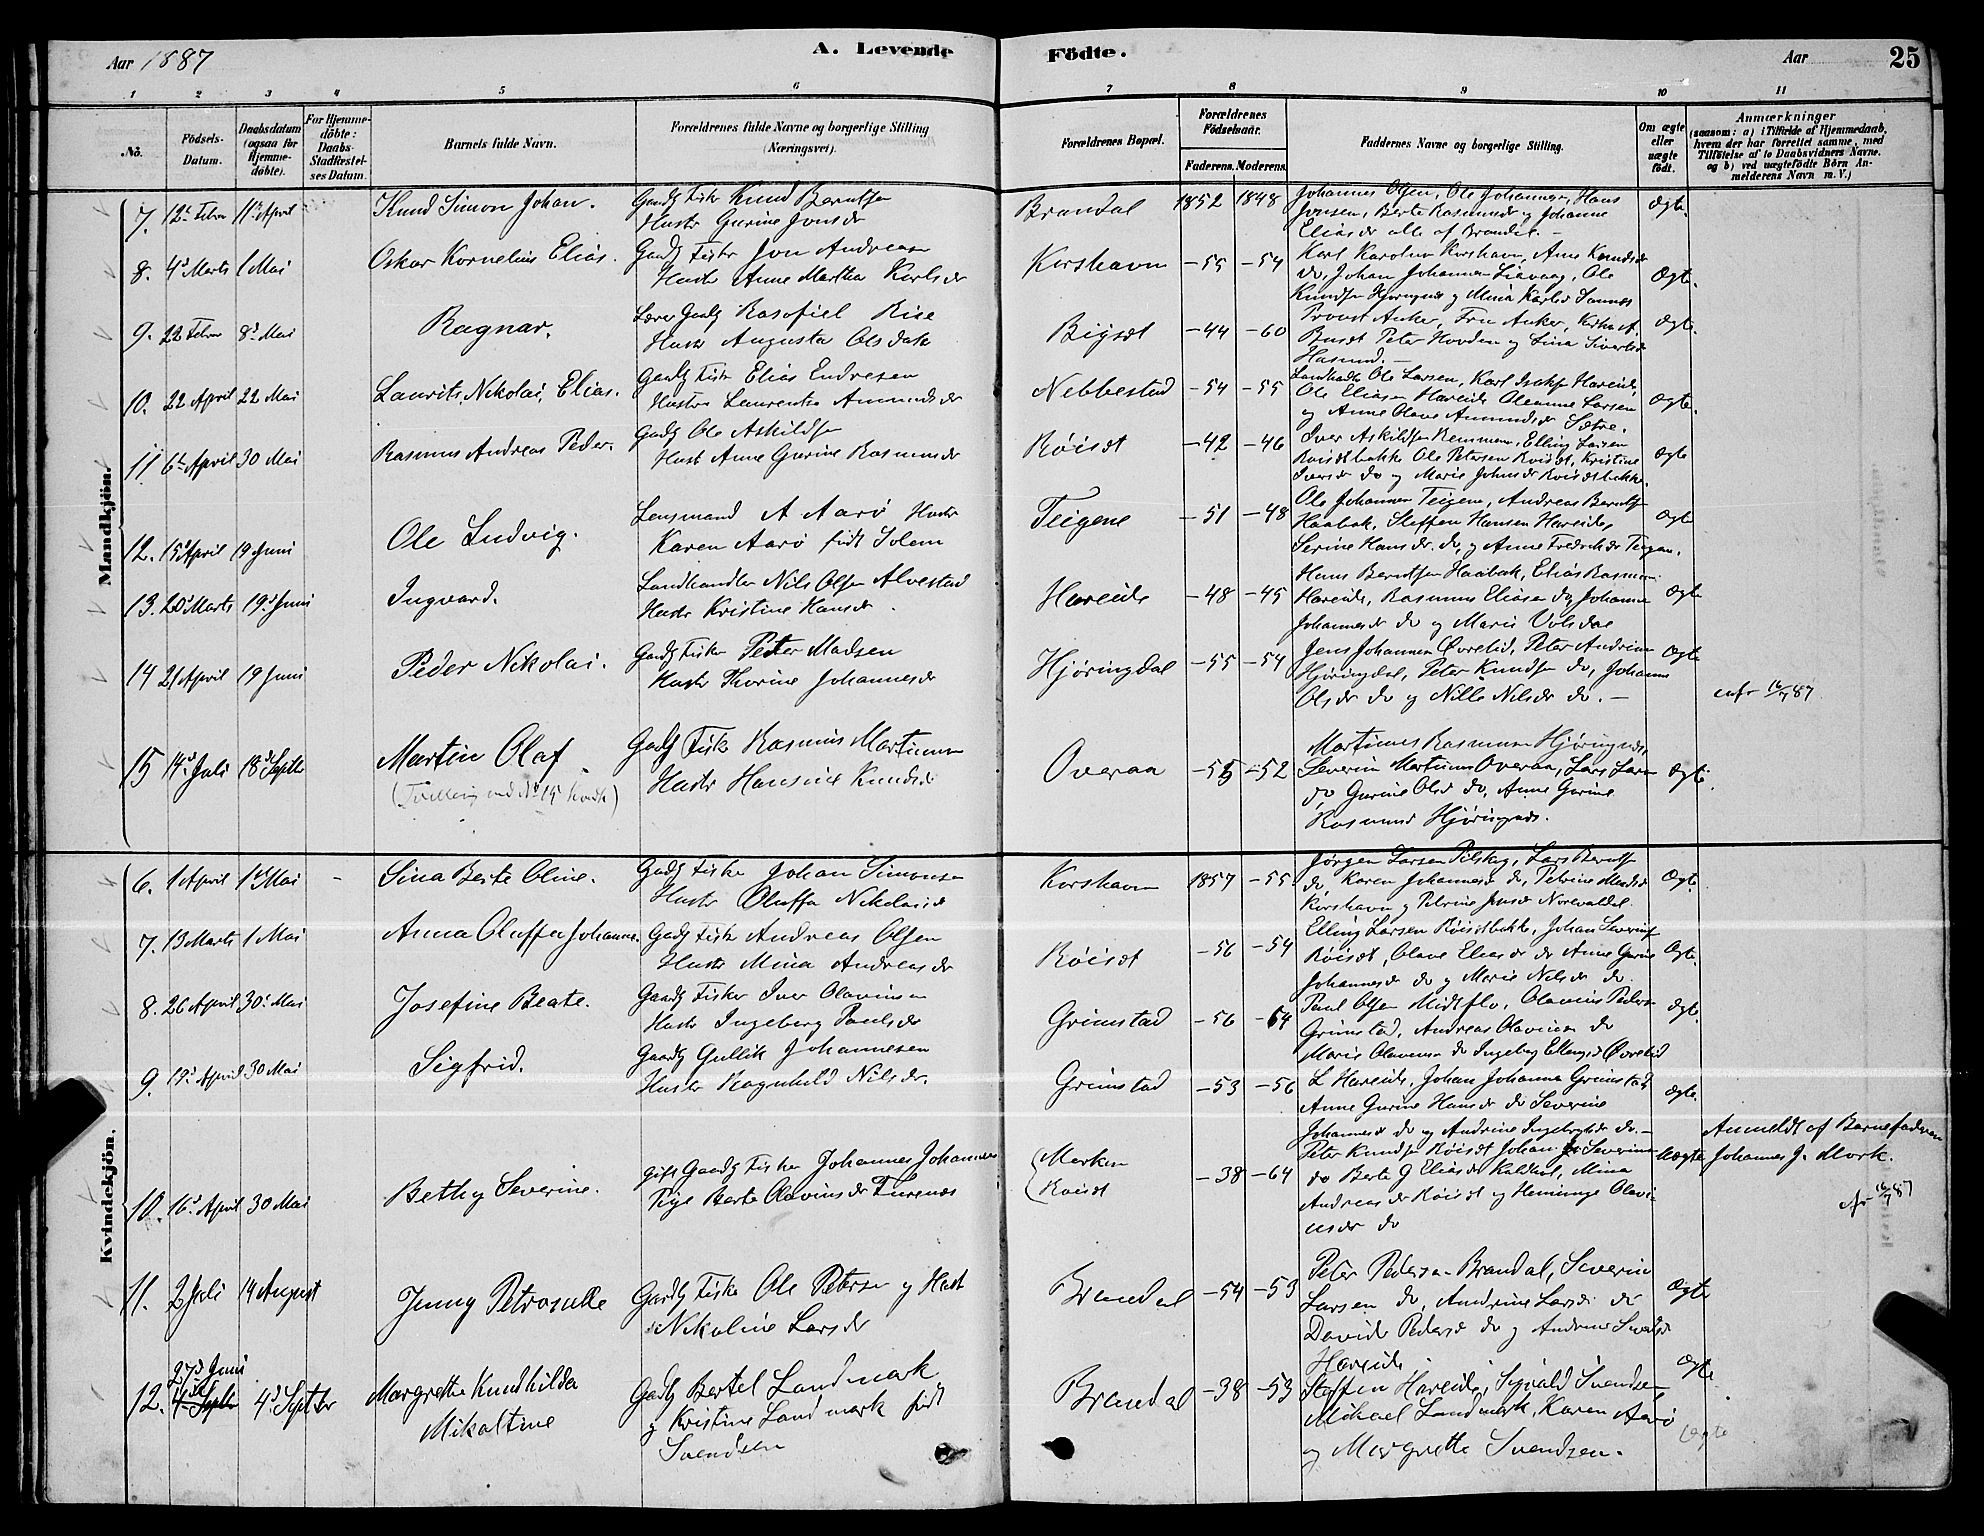 Aar 1887
A. Levende
Födte.
Aar
25
1 2 3 4 5 6 7 8 9 10 11
No.
Födsels-
Datum.
Daabsdatum
(ogsaa for
Hjemme-
döbte).
For Hjemme-
döbte:
Daabs-
Stadfæstel-
ses Datum.
Barnets fulde Navn.
Forældrenes fulde Navne og borgerlige Stilling
(Næringsvei).
Forældrenes Bopæl.
Forældrenes
Födselsaar.
Faderens. Moderens.
Faddernes Navne og borgerlige Stilling.
Om ægte
eller
uægte
født.
Anmærkninger
(saasom: a) i Tilfælde af Hjemmedaab,
hvem der har forrettet samme, med
Tilföielse af to Daabsvidners Navne.
og b) ved uægtefödte Börn An-
melderens Navn m. V.)
Mandkjön.
7. 12 Febr 11 April Knud Simon Johan. Gaardb Fisker Knud Berntsen
Hustr Gurine Jonsdr
Brandal 1852 1848
Johannes Olsen, Ole Johannesen, Hans
Jonsen, Berte Rasmusdr og Johanne
Eliasdr alle af Brandal. -
Ægte.
8. 4 Marts 1 Mai Oskar Kornelius Elias. Gaardb Fisker Jon Andreasen
Hustr Anne Martha Karlsdr
Korshavn -55 -54
Karl Karolius Korshavn, Anne Knudsdr
do, Johan Johannesen Liavaag, Ole
Knudsen Hjørungnes og Mina Karlsdr
Ægte.
9. 22 Febr 8 Mai Ragnar. Lærer Gaardb Rasofiel Rise
Hustr Augusta Olsdatr
Bigsæt -44 -60
Provst Anker, Fru Anker,
Peter Hovden og Lina Sivertsdr
Hasund. -
Ægte.
10. 22 April 22 Mai Laurits, Nikolai, Elias. Gaardb Fisk Elias Endresen
Hustru Laurentse Amundsdr
Nebbestad -54 -55
Landhandl Ole Larsen, Karl Hareide,
Ole Eliasen Hareide Oleanne Larsen
og Anne Olave Amundsdr Sætre.
Ægte.
11 6 April 30 Mai Rasmus Andreas Peder. Gaardb Ole Askildsen
Hustr Anne Gurine Rasmusdr
Röisæt -42 -46
Iver Askildsen Remmen, Elling Larsen
Røisætbakke Ole Petersen Røisæt, Kristine
Iversdr do og Marie Johnsdr Røisætbakke.
Ægte
12. 15 April 19 Juni Ole Ludvig. Lensmand A Aarö Hustr
Karen Aarö født Solem
Teigene -51 -48
Ole Johannesen Teigene, Andreas Berntsen
Haabak, Steffen Hansen Hareide,
Serine Hansdr do, og Anne Fredriksdr Teigen.
Ægte
13. 20 Marts 19 Juni Ingvard. Landhandler Nils Olsen Alvestad
Hustr Kristine Hansdr.
Hareide -48 -45
Hans Berntsen Haabak, Elias Rasmussen
Hareide, Rasmus Eliasen do, Johanne
Johannesdr do og Marie Volsdal
Ægte
14 21 April 19 Juni Peder Nikolai. Gaardb Fisker Peter Madsen
Hustr Thorine Johannesdr
Hjøringdal -55 -54
Jens Johannesen Øvrelid, Peter Andreasen
Hjøringdal, Peter Knudsen do, Johanne
Olsdr do og Nille Nilsdr do. -
Ægte
16/7 87
15 14 Juli 18 Septbr Martin Olaf
(Tvilling med No 15 Kvindk)
Gaardb Fisk Rasmus Martinusen
Hustr Hansine Knudsdr
Overaa -55 -52
Martinus Rasmussen Hjøringnes,
Severin Martinusen Overaa, Lars Larsen
do, Gurine Olsdr do, Anne Gurine
Rasmusdr Hjøringnes.
Ægte.
Kvindekjön.
6. 1 April 1 Mai - Sina Berte Oline. Gaardb Fisker Johan Simonsen
Hustr Oluffa Nikolaisdr
Korshavn 1857 -55
Jørgen Larsen Pilskog, Lars Berntsen
do, Karen Johannesdr do, Petrine Madsdr
Korshavn og Petrine Jensdr Norevaldal.
Ægte
7. 13 Marts 1 Mai Anna Oluffa Johanne. Gaardb Fisk Andreas Olsen
Hustr Mina Andreasdr
Röisæt -56 -54
Elling Larsen Röisætbakke, Johan Severins
Røisæt, Olave Eliasdr do Anne Gurine
Johannesdr do og Marie Nilsdr do.
Ægte.
8. 26 April 30 Mai Josefine Beate. Gaardb Fisker Iver Olavinsen
Hustr Ingeborg Paulsdr
Grimstad -56 -64
Paul Olsen Midtflø, Olavius Peders
Grimstad, Andreas Olavisen do
Marie Olavisen do Ingeborg Ellingsdr Øvrelid
Ægte.
9. 19 April 30 Mai Sigfrid. Gaardb Gullik Johannesen
Hustr Ragnhild Nilsdr.
Grimstad -53 -56
L Hareide, Johan Johannesen Grimstad,
Anne Gurine Hansdr do Severine
Johannesdr do og Andrine Ingebrigtsdr do. -
Ægte.
10. 16 April 30 Mai Bethy Severine. gift Gaardb Fisker Johannes Johannesen
Pige Berte Olaviusdr Furenæs
(Morken
Røisæt
-38 -64
Peter Knudsen Røisæt Johan Severinsen
do Berte G Eliasdr Kaldhol, Mina
Andreasdr Røisæt og Hemminge Olavi-
usdr do
Uægte
Anmeldt af Barnefaderen
Johannes J. Mork.
16/7 87
11. 2 Juli 14 August Jenny Petrosille Gaardb Fisker Ole Petersen og Hust
Nikoline Larsdr
Brandal -54 -53
Peter Pedersen Brandal, Severin
Larsen do, Andrine Larsdr do
Davide Pedersdr do og Andrine Sivertsdr
Hareide
Ægte
27 Juni
12. 4 Septbr 4 Septbr Margrethe Knudhilda
Mikaltine
Gaardb Bertel Landmark
og Kristine Landmark født
Svendsen
Brandal -38 -53
Steffen Hareide, Sigvald Svendsen,
Mikael Landmark, Karen Aarö
og Margrethe Svendsen.
Ægte
Uægte